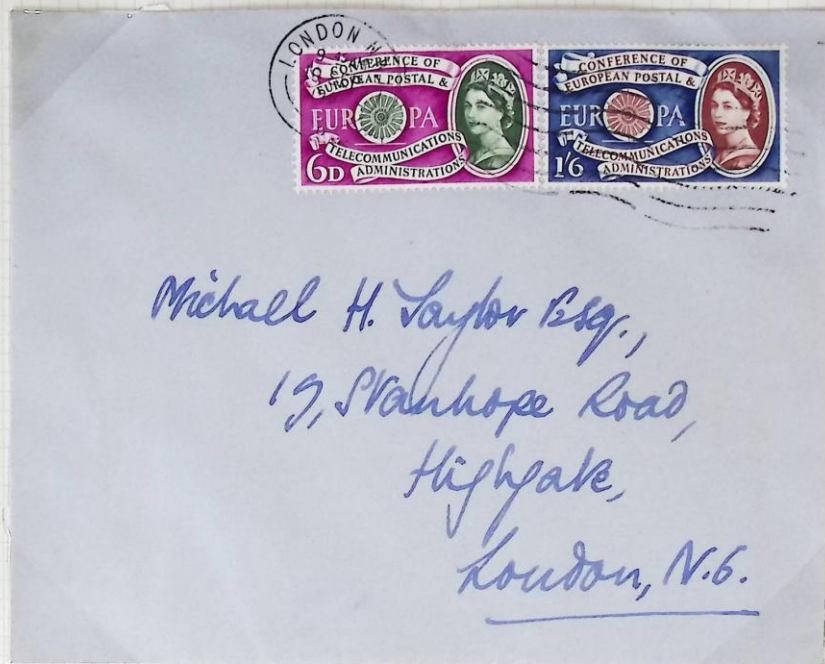 LONDON
CONFERENCE OF
EUROPEAN POSTAL &
EUROPA
TELECOMMUNICATIONS
ADMINISTRATIONS
6D
CONFERENCE OF
EUROPEAN POSTAL &
EUROPA
TELECOMMUNICATIONS
ADMINISTRATIONS
1/6
Michael H. Taylor Esq.,
19, Stanhope Road,
Highgate,
London, N.6.